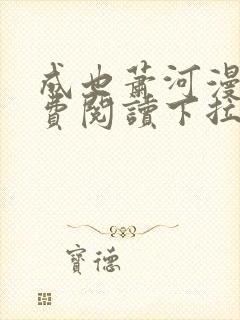 成也蕭河漫
費閱讀下拉
寶德